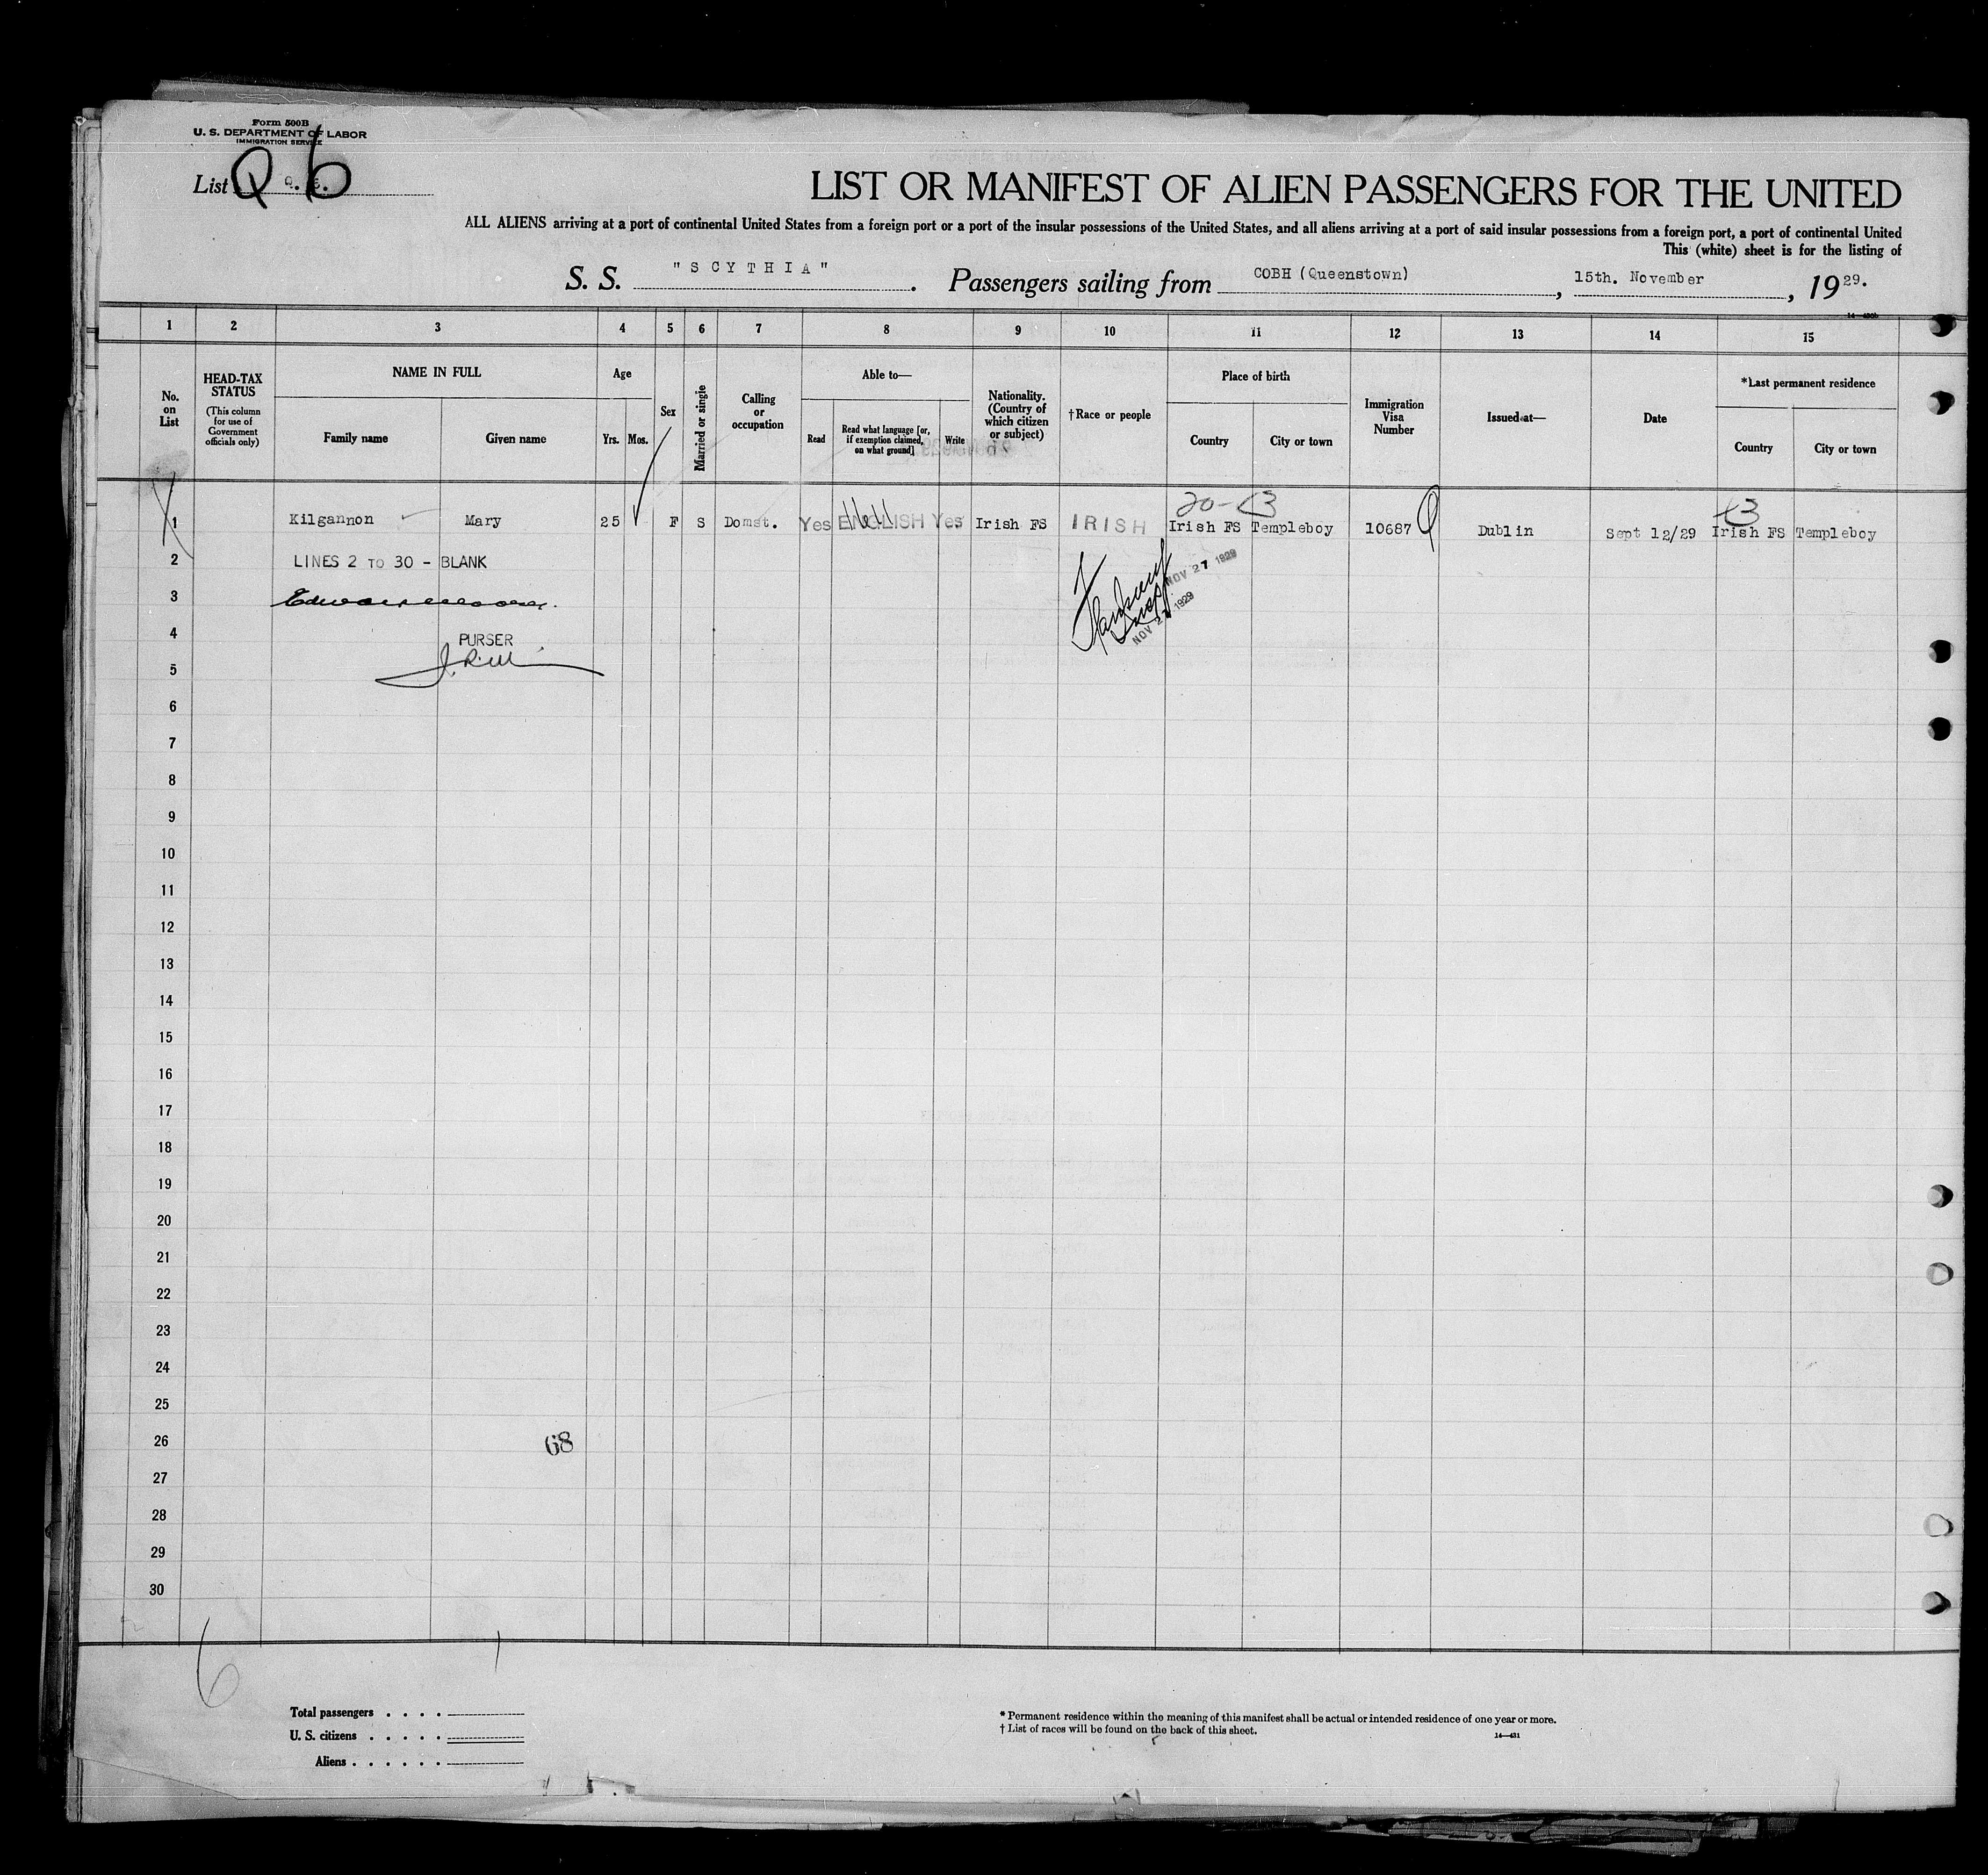 Form 500B
U. S. DEPARTMENT OF LABOR
IMMIGRATION SERVICE
List Q.6.
Q 6
LIST OR MANIFEST OF ALIEN PASSENGERS FOR THE UNITED
ALL ALIENS arriving at a port of continental United States from a foreign port or a port of the insular possessions of the United States, and all aliens arriving at a port of said insular possessions from a foreign port, a port of continental United
This (white) sheet is for the listing of
S. S. "SCYTHIA". Passengers sailing from COBH (Queenstown), 15th. November, 1929.
1 2 3 4 5 6 7 8 9 10 11 12 13 14 15
No. on List
HEAD-TAX STATUS
(This column for use of Government officials only)
NAME IN FULL
Family name Given name
Age
Yrs. Mos.
Sex
Married or single
Calling or occupation
Able to—
Read
Read what language [or, if exemption claimed, on what ground]
Write
Nationality. (Country of which citizen or subject)
†Race or people
Place of birth
Country City or town
Immigration Visa Number
Issued at—
Date
*Last permanent residence
Country City or town
20-
1 Kilgannon Mary 25 F S Domst. Yes ENGLISH Yes Irish FS IRISH Irish FS Templeboy 10687 Dublin Sept 12/29 Irish FS Templeboy
2 LINES 2 TO 30 - BLANK
NOV 27 1929
3
NOV 1929
4 PURSER
5
6
7
8
9
10
11
12
13
14
15
16
17
18
19
20
21
22
23
24
25
26 68
27
28
29
30
6
Total passengers . . . .
U. S. citizens . . . . .
Aliens . . . . . .
* Permanent residence within the meaning of this manifest shall be actual or intended residence of one year or more.
† List of races will be found on the back of this sheet.
14—431